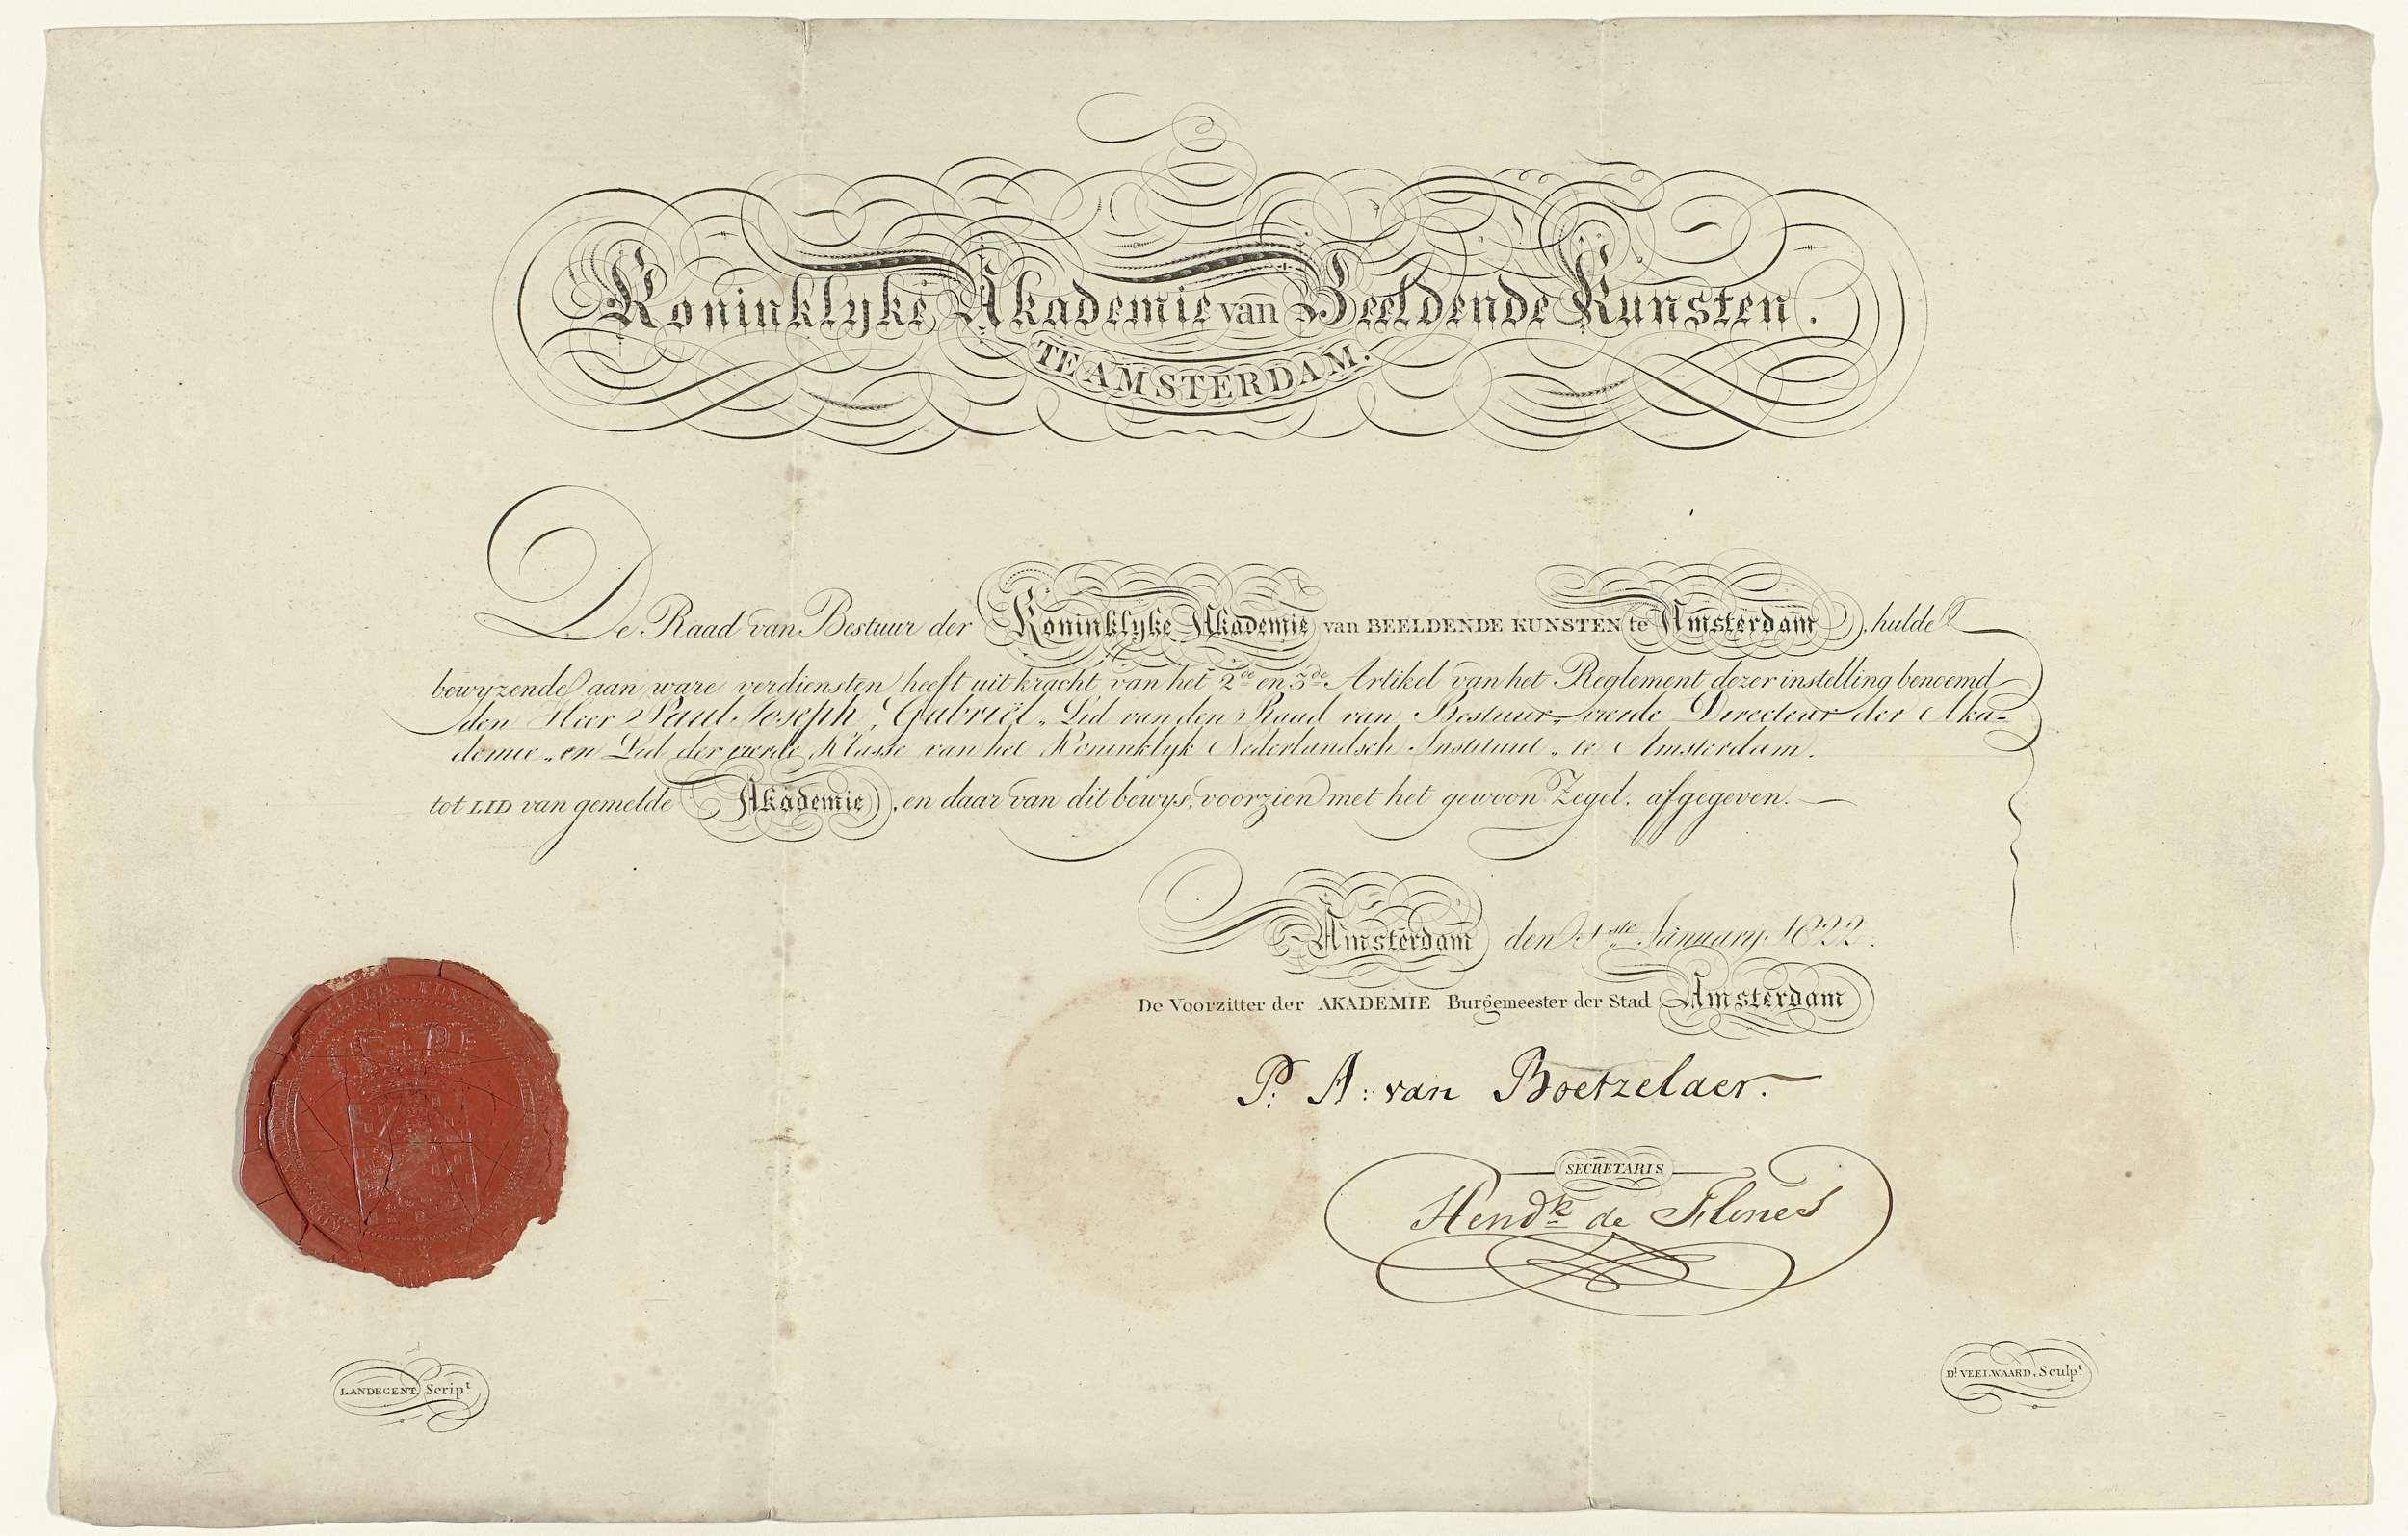 Koninklyke Akademie van Beeldende Kunsten.
TE AMSTERDAM.
De Raad van Bestuur der Koninklyke Akademie van BEELDENDE KUNSTEN te Amsterdam, hulde
bewyzende aan ware verdiensten heeft uit kracht van het 2de en 3de Artikel van het Reglement dezer instelling benoemd
den Heer Paul Joseph Gabriël, Lid van den Raad van Bestuur, vierde Directeur der Aka-
demie, en Lid der vierde Klasse van het Koninklyk Nederlandsch Instituut, te Amsterdam.
tot LID van gemelde Akademie, en daar van dit bewys, voorzien met het gewoon Zegel, afgegeven.
Amsterdam den 1ste January 1822.
De Voorzitter der AKADEMIE Burgemeester der Stad Amsterdam
P. A: van Boetzelaer.
SECRETARIS
Hendk de Flines
LANDEGENT, Script.
D. VEELWAARD, Sculpt.